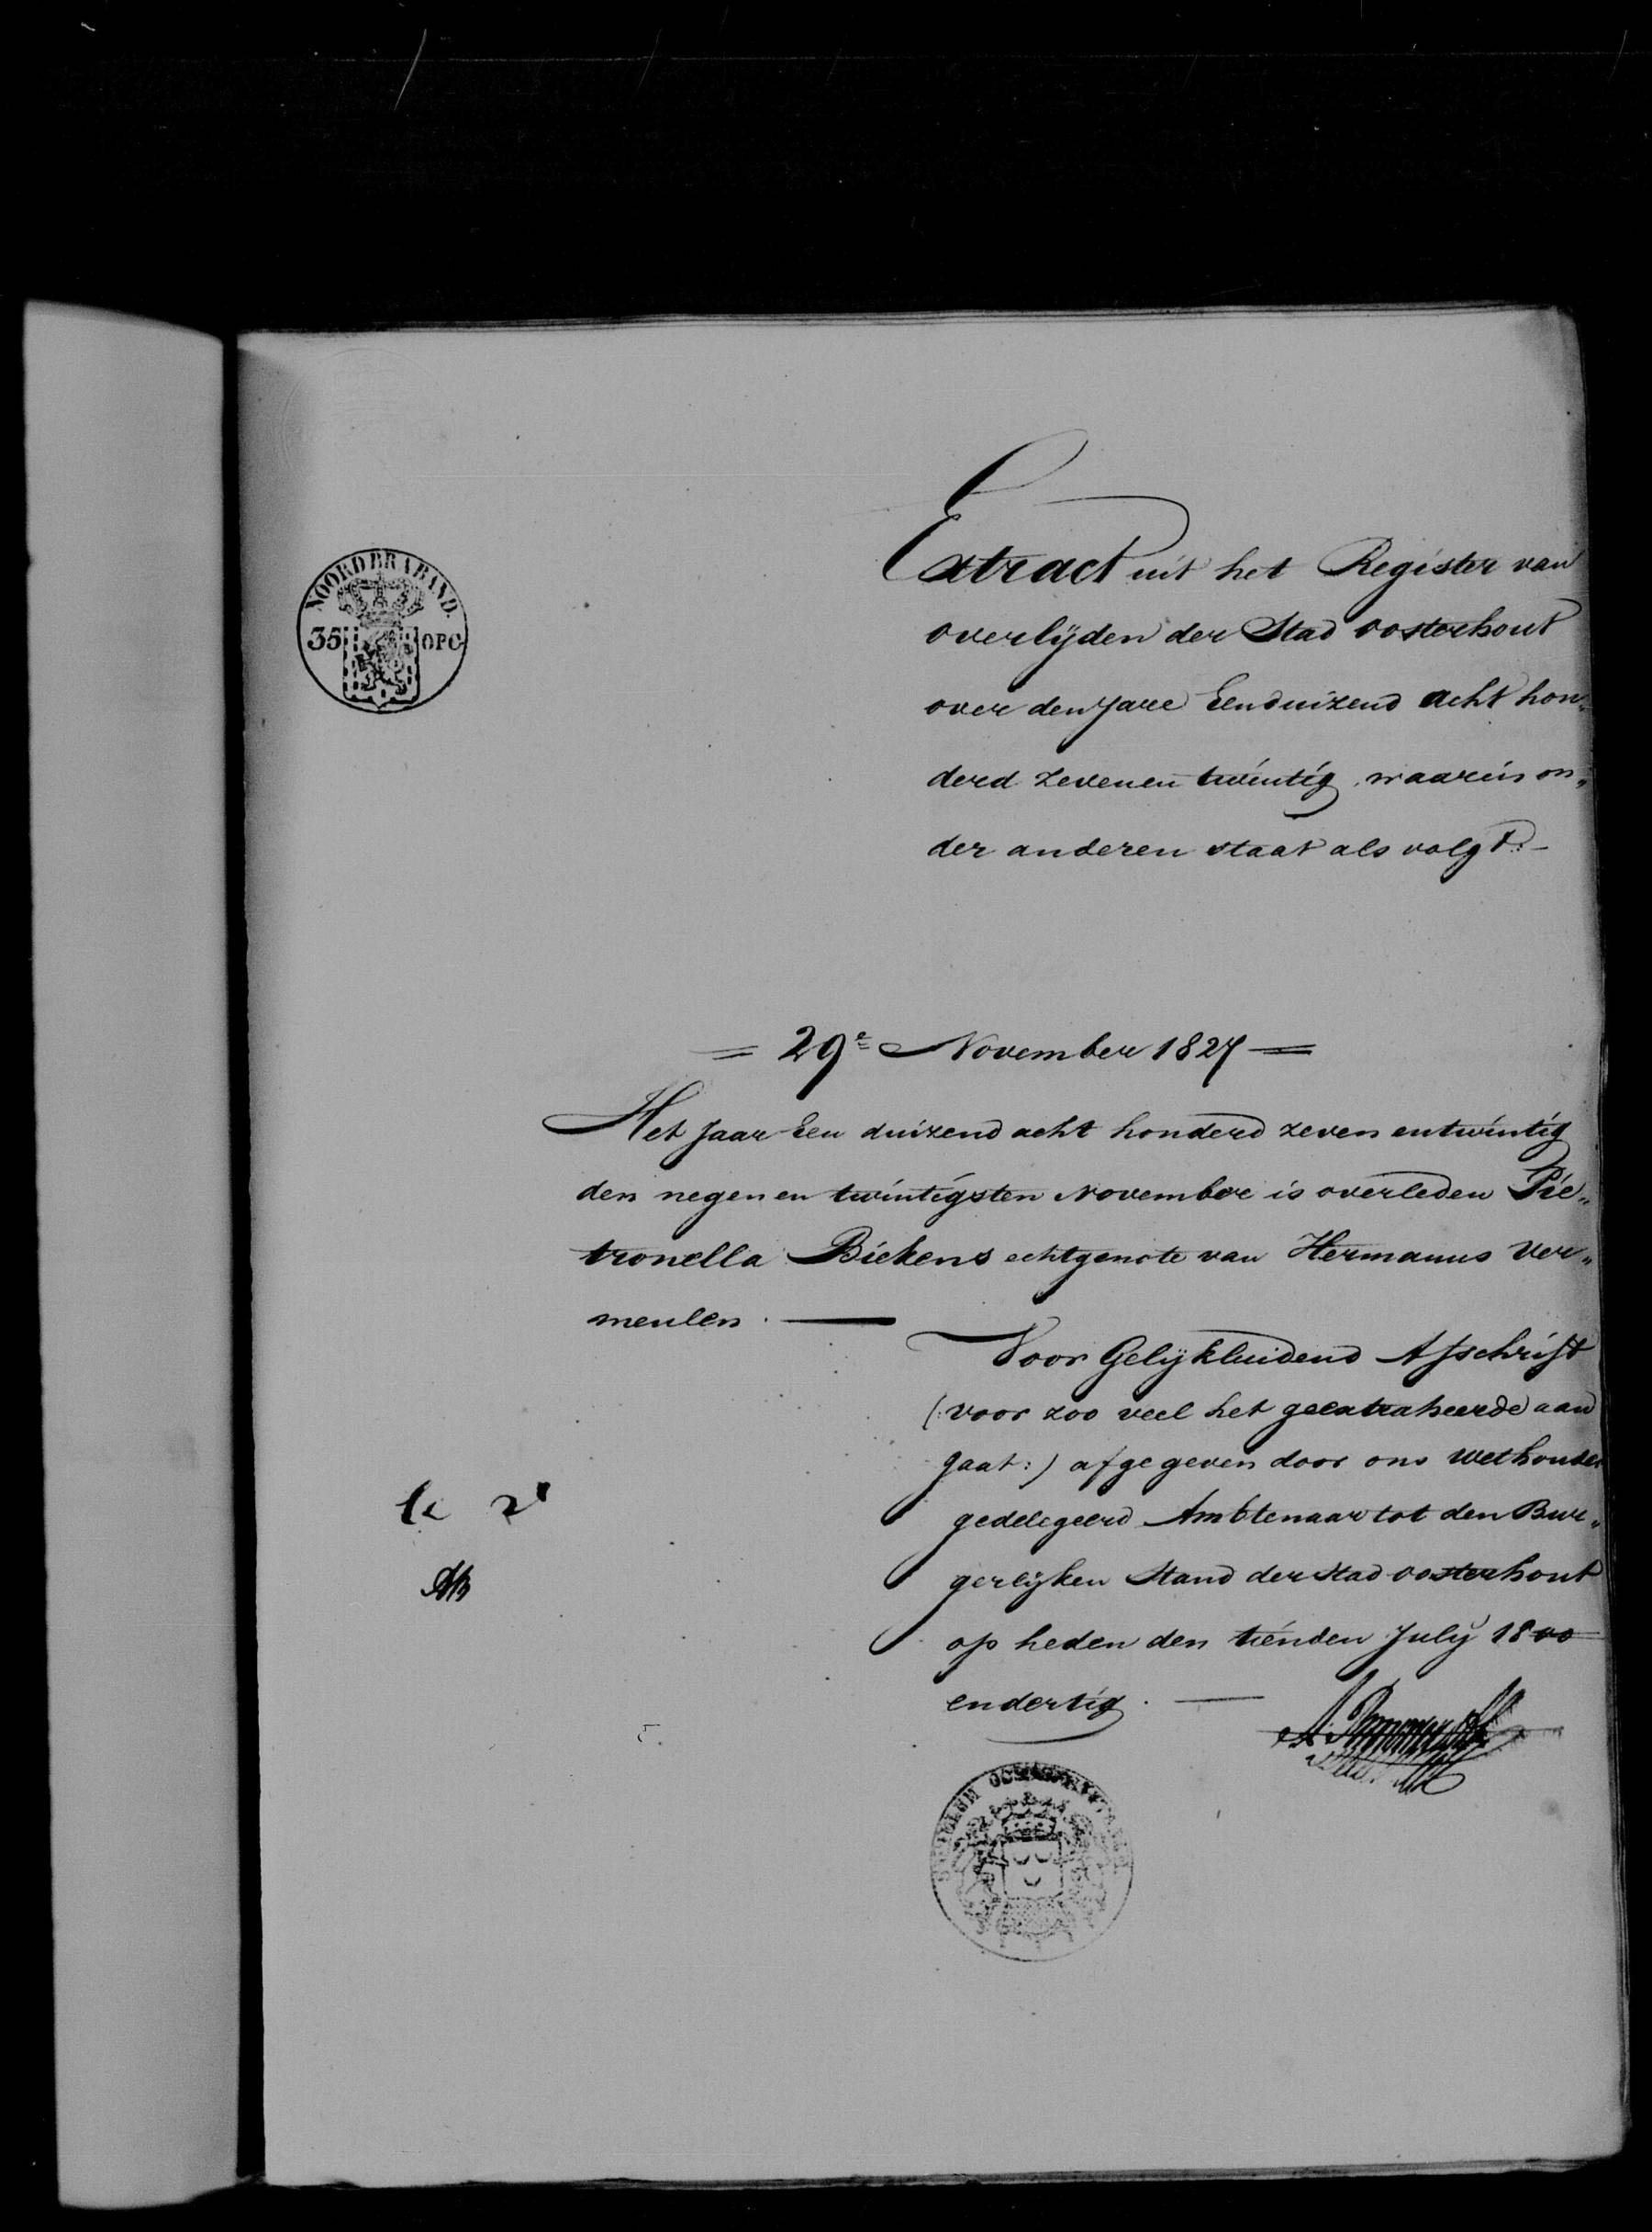 NOORDBRABAND.
35 OPC
Extract uit het Register van
overlijden der Stad Oosterhout
over den Jare Eenduizend acht hon„
derd zevenentwintig, waarin on„
der anderen staat als volgt:-
= 29e November 1827 =
Het Jaar Een duizend acht honderd zeven entwintig
den negenen twintigsten November is overleden Pie„
tronella Biekens echtgenote van Hermanus Ver„
meulen. —
Voor Gelijkluidend Afschrift
(:voor zoo veel het geextraheerde aan
gaat:) afgegeven door ons Wethouder
gedelegeerd Ambtenaar tot den Bur„
gerlijken Stand der Stad Oosterhout
op heden den tienden July 1800
endertig. —